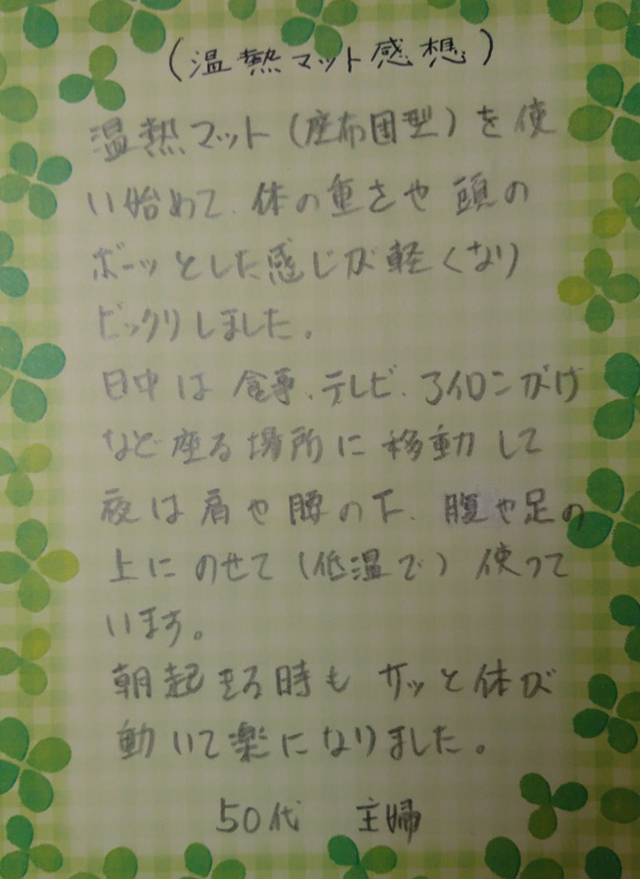 (温熱マット感想)
温熱マット(座布団型)を使
い始めて、体の重さや頭の
ボーッとした感じが軽くなり
ビックリしました。
日中は食事、テレビ、アイロンがけ
など座る場所に移動して
夜は肩や腰の下、腹や足の
上にのせて(低温で)使って
います。
朝起きる時もサッと体が
動いて楽になりました。
50代 主婦